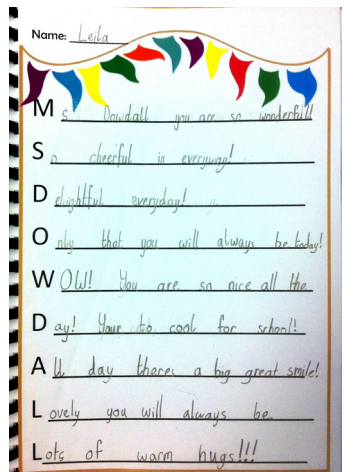 Name: Leila
Ms Dowdall you are so wonderful!
So cheerful in everyway!
Delightful everyday!
Only that you will always be today!
WOW! You are so nice all the
Day! Your to cool for school!
All day theres a big great smile!
Lovely you will always be
Lots of warm hugs!!!